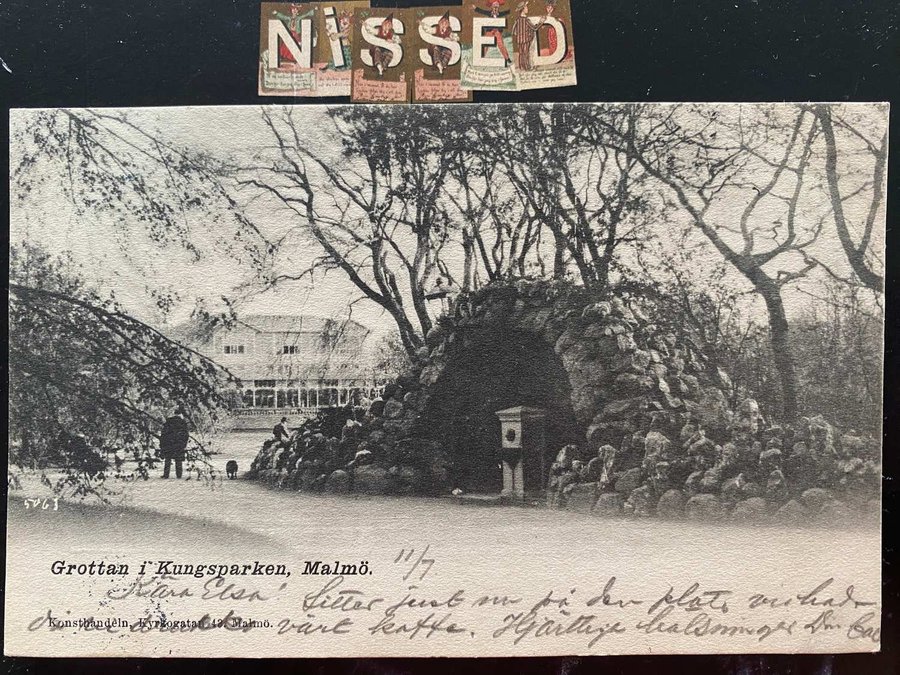 NiSSED
5463
Grottan i Kungsparken, Malmö.
11/7
Kära Elsa! Sitter just nu på den plats vi hade
Konsthandeln, Kyrkogatan 43. Malmö.
vårt kaffe. Hjärtliga hälsningar Din